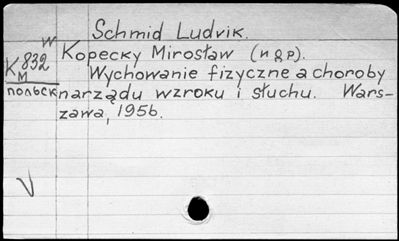 Schmid Ludvik.
W
Kopecky Mirosław (и др).
К 832
М
Wychowanie fizyczne a choroby
польск
narządu wzroku i słuchu. Wars-
zawa, 1956.
V